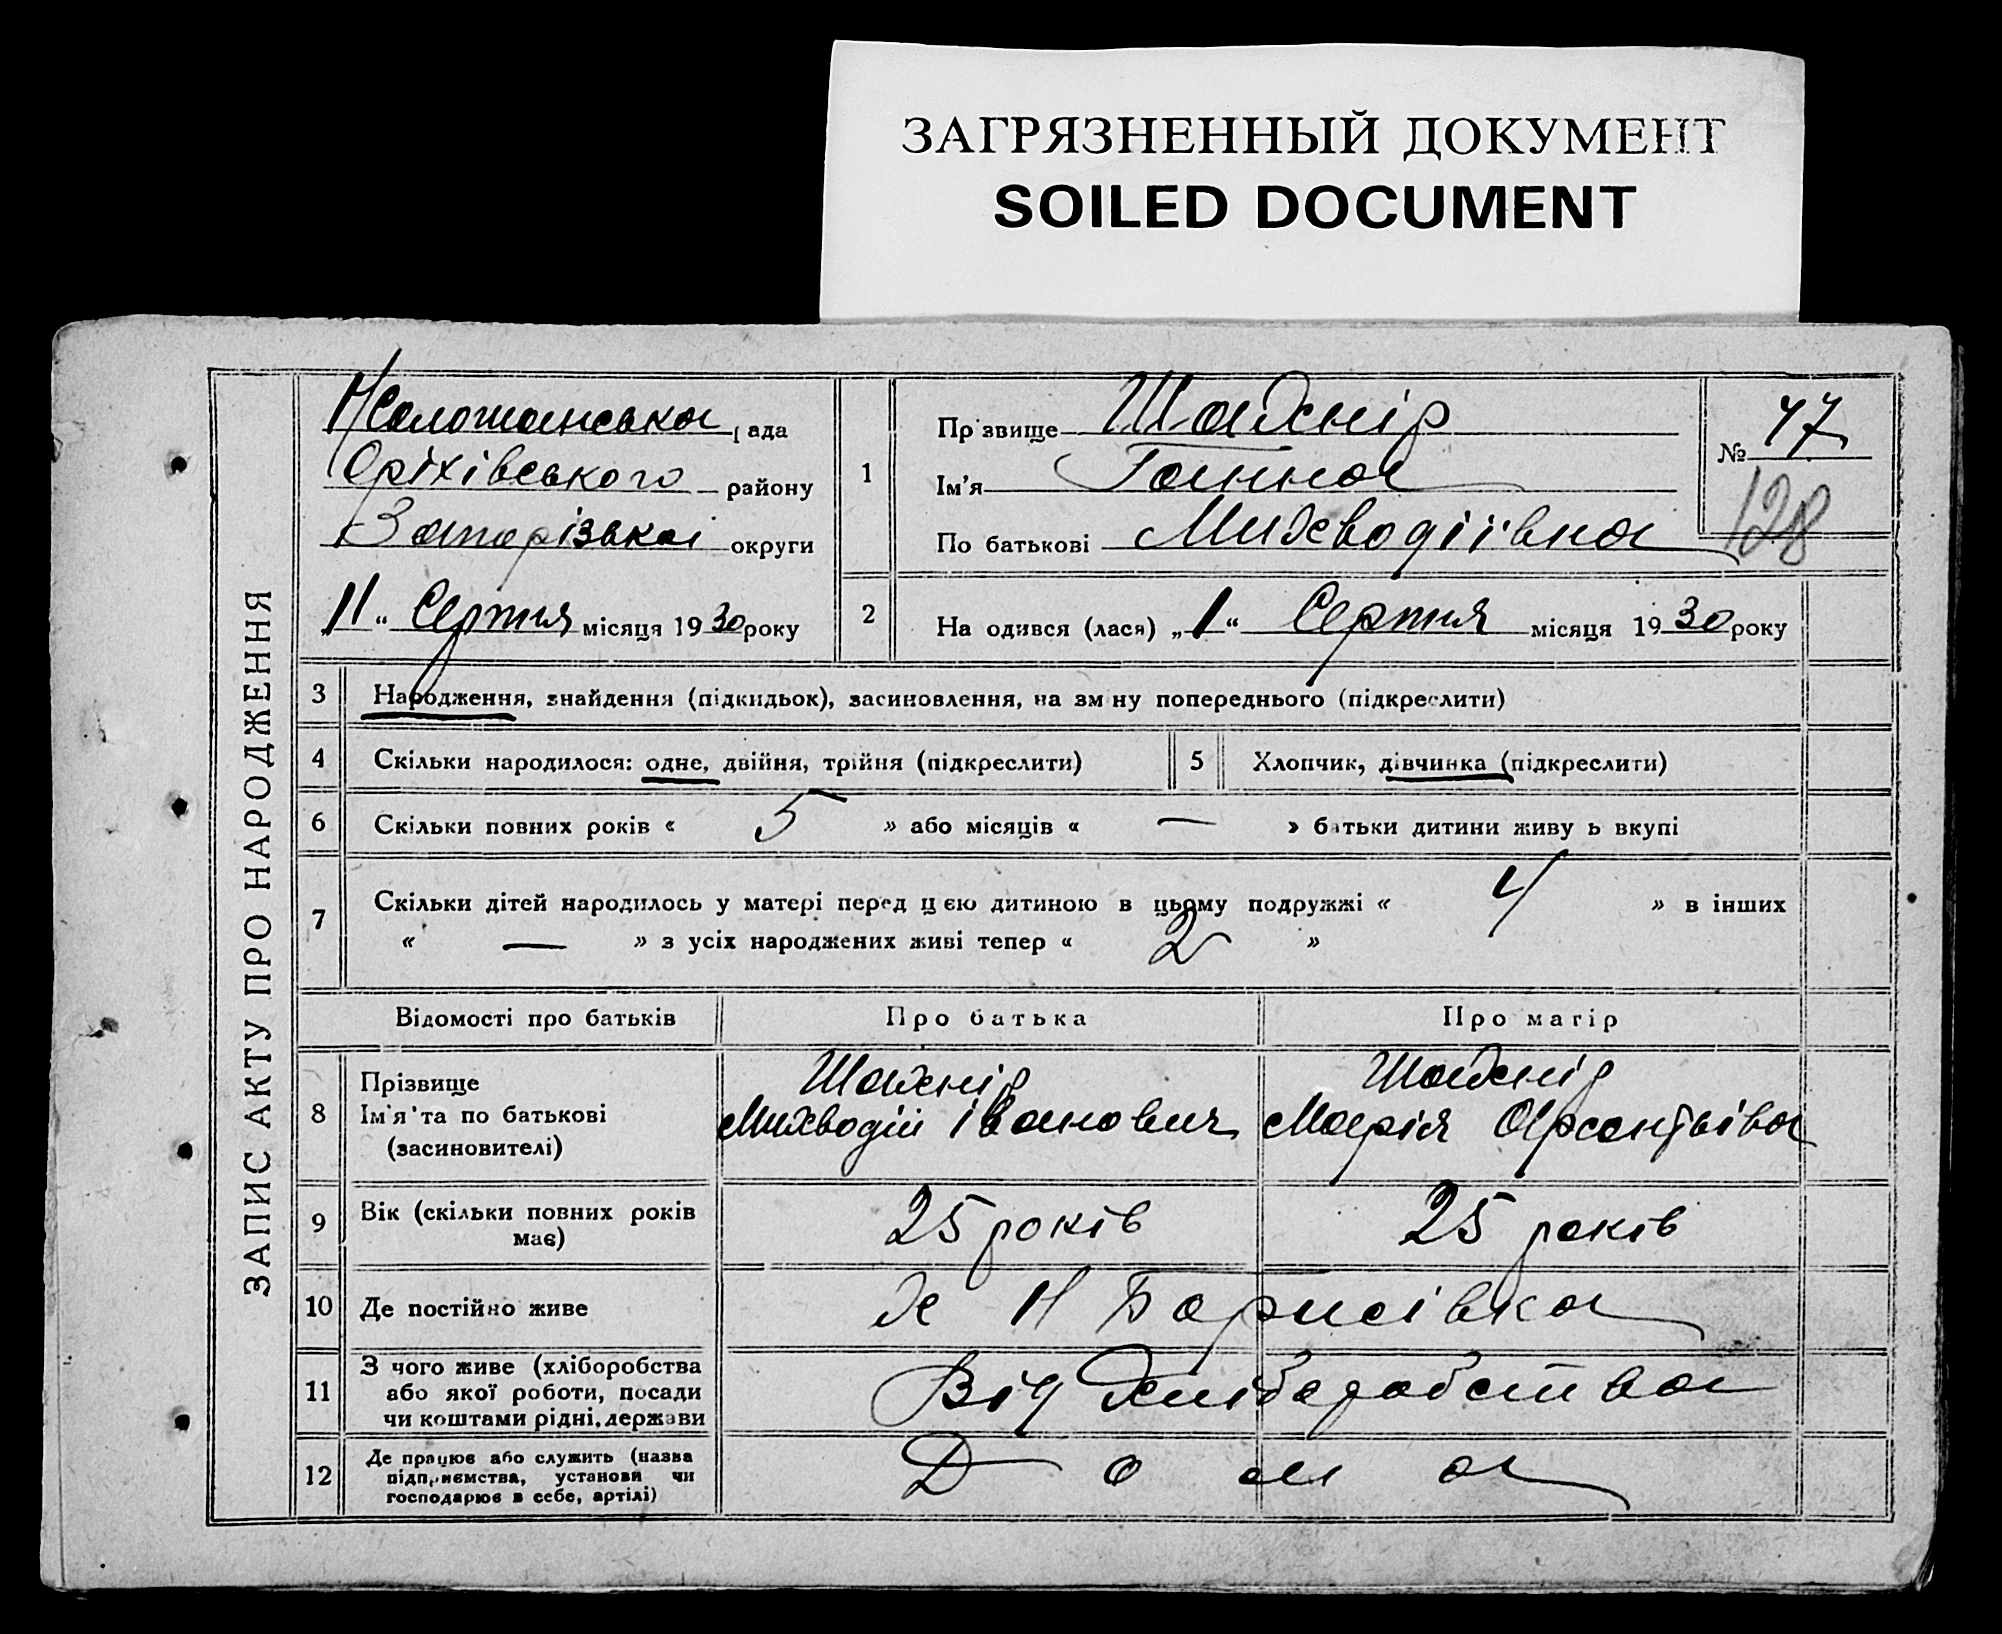 ЗАГРЯЗНЕННЫЙ ДОКУМЕНТ
SOILED DOCUMENT
ЗАПИС АКТУ ПРО НАРОДЖЕННЯ
рада
Оріхівського району
Запорізької округи
11 " Серпня місяця 1930 року
1
Прізвище
Ім'я Ганна
По батькові
№ 47
128
2
На одився (лася) „1" Серпня місяця 1930 року
3 Народження, знайдення (підкидьок), засиновлення, на зміну попереднього (підкреслити)
4 Скільки народилося: одне, двійня, трійня (підкреслити)
5 Хлопчик, дівчинка (підкреслити)
6 Скільки повних років « 5 » або місяців « — » батьки дитини живуть вкупі
7 Скільки дітей народилось у матері перед цією дитиною в цьому подружжі « 4 » в інших
« — » з усіх народжених живі тепер « 2 »
Відомості про батьків Про батька Про матір
8 Прізвище
Ім'я та по батькові
(засиновителі)
Іванович
Марія
9 Вік (скільки повних років
має)
25 років 25 років
10 Де постійно живе
х Н Борисівка
11 З чого живе (хліборобства
або якої роботи, посади
чи коштами рідні, держави
Від хліборобства
12 Де працює або служить (назва
підприємства, установи чи
господарює в себе, артілі)
Дома